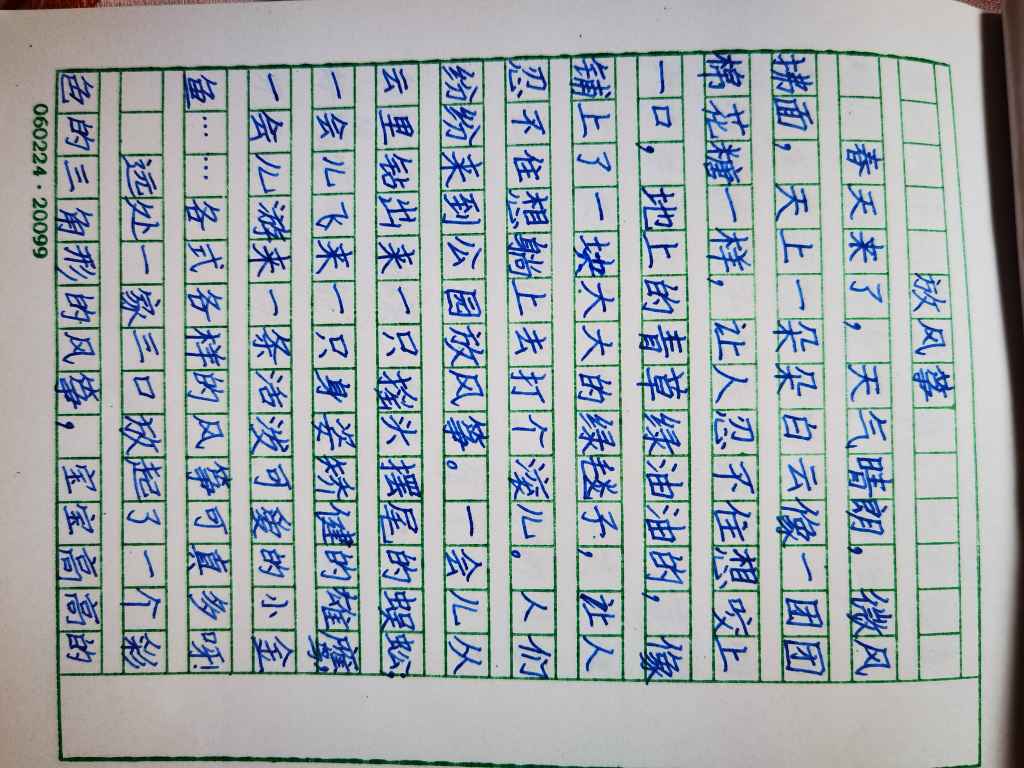 放风筝
春天来了，天气晴朗，微风
拂面，天上一朵朵白云像一团团
棉花糖一样，让人忍不住想咬上
一口，地上的青草绿油油的，像
铺上了一块大大的绿毯子，让人
忍不住想躺上去打个滚儿。人们
纷纷来到公园放风筝。一会儿从
云里钻出来一只摇头摆尾的蜈蚣；
一会儿飞来一只身姿矫健的雄鹰
一会儿游来一条活泼可爱的小金
鱼……各式各样的风筝可真多呀！
远处一家三口放起了一个彩
色的三角形的风筝，宝宝高高的
060224·20099